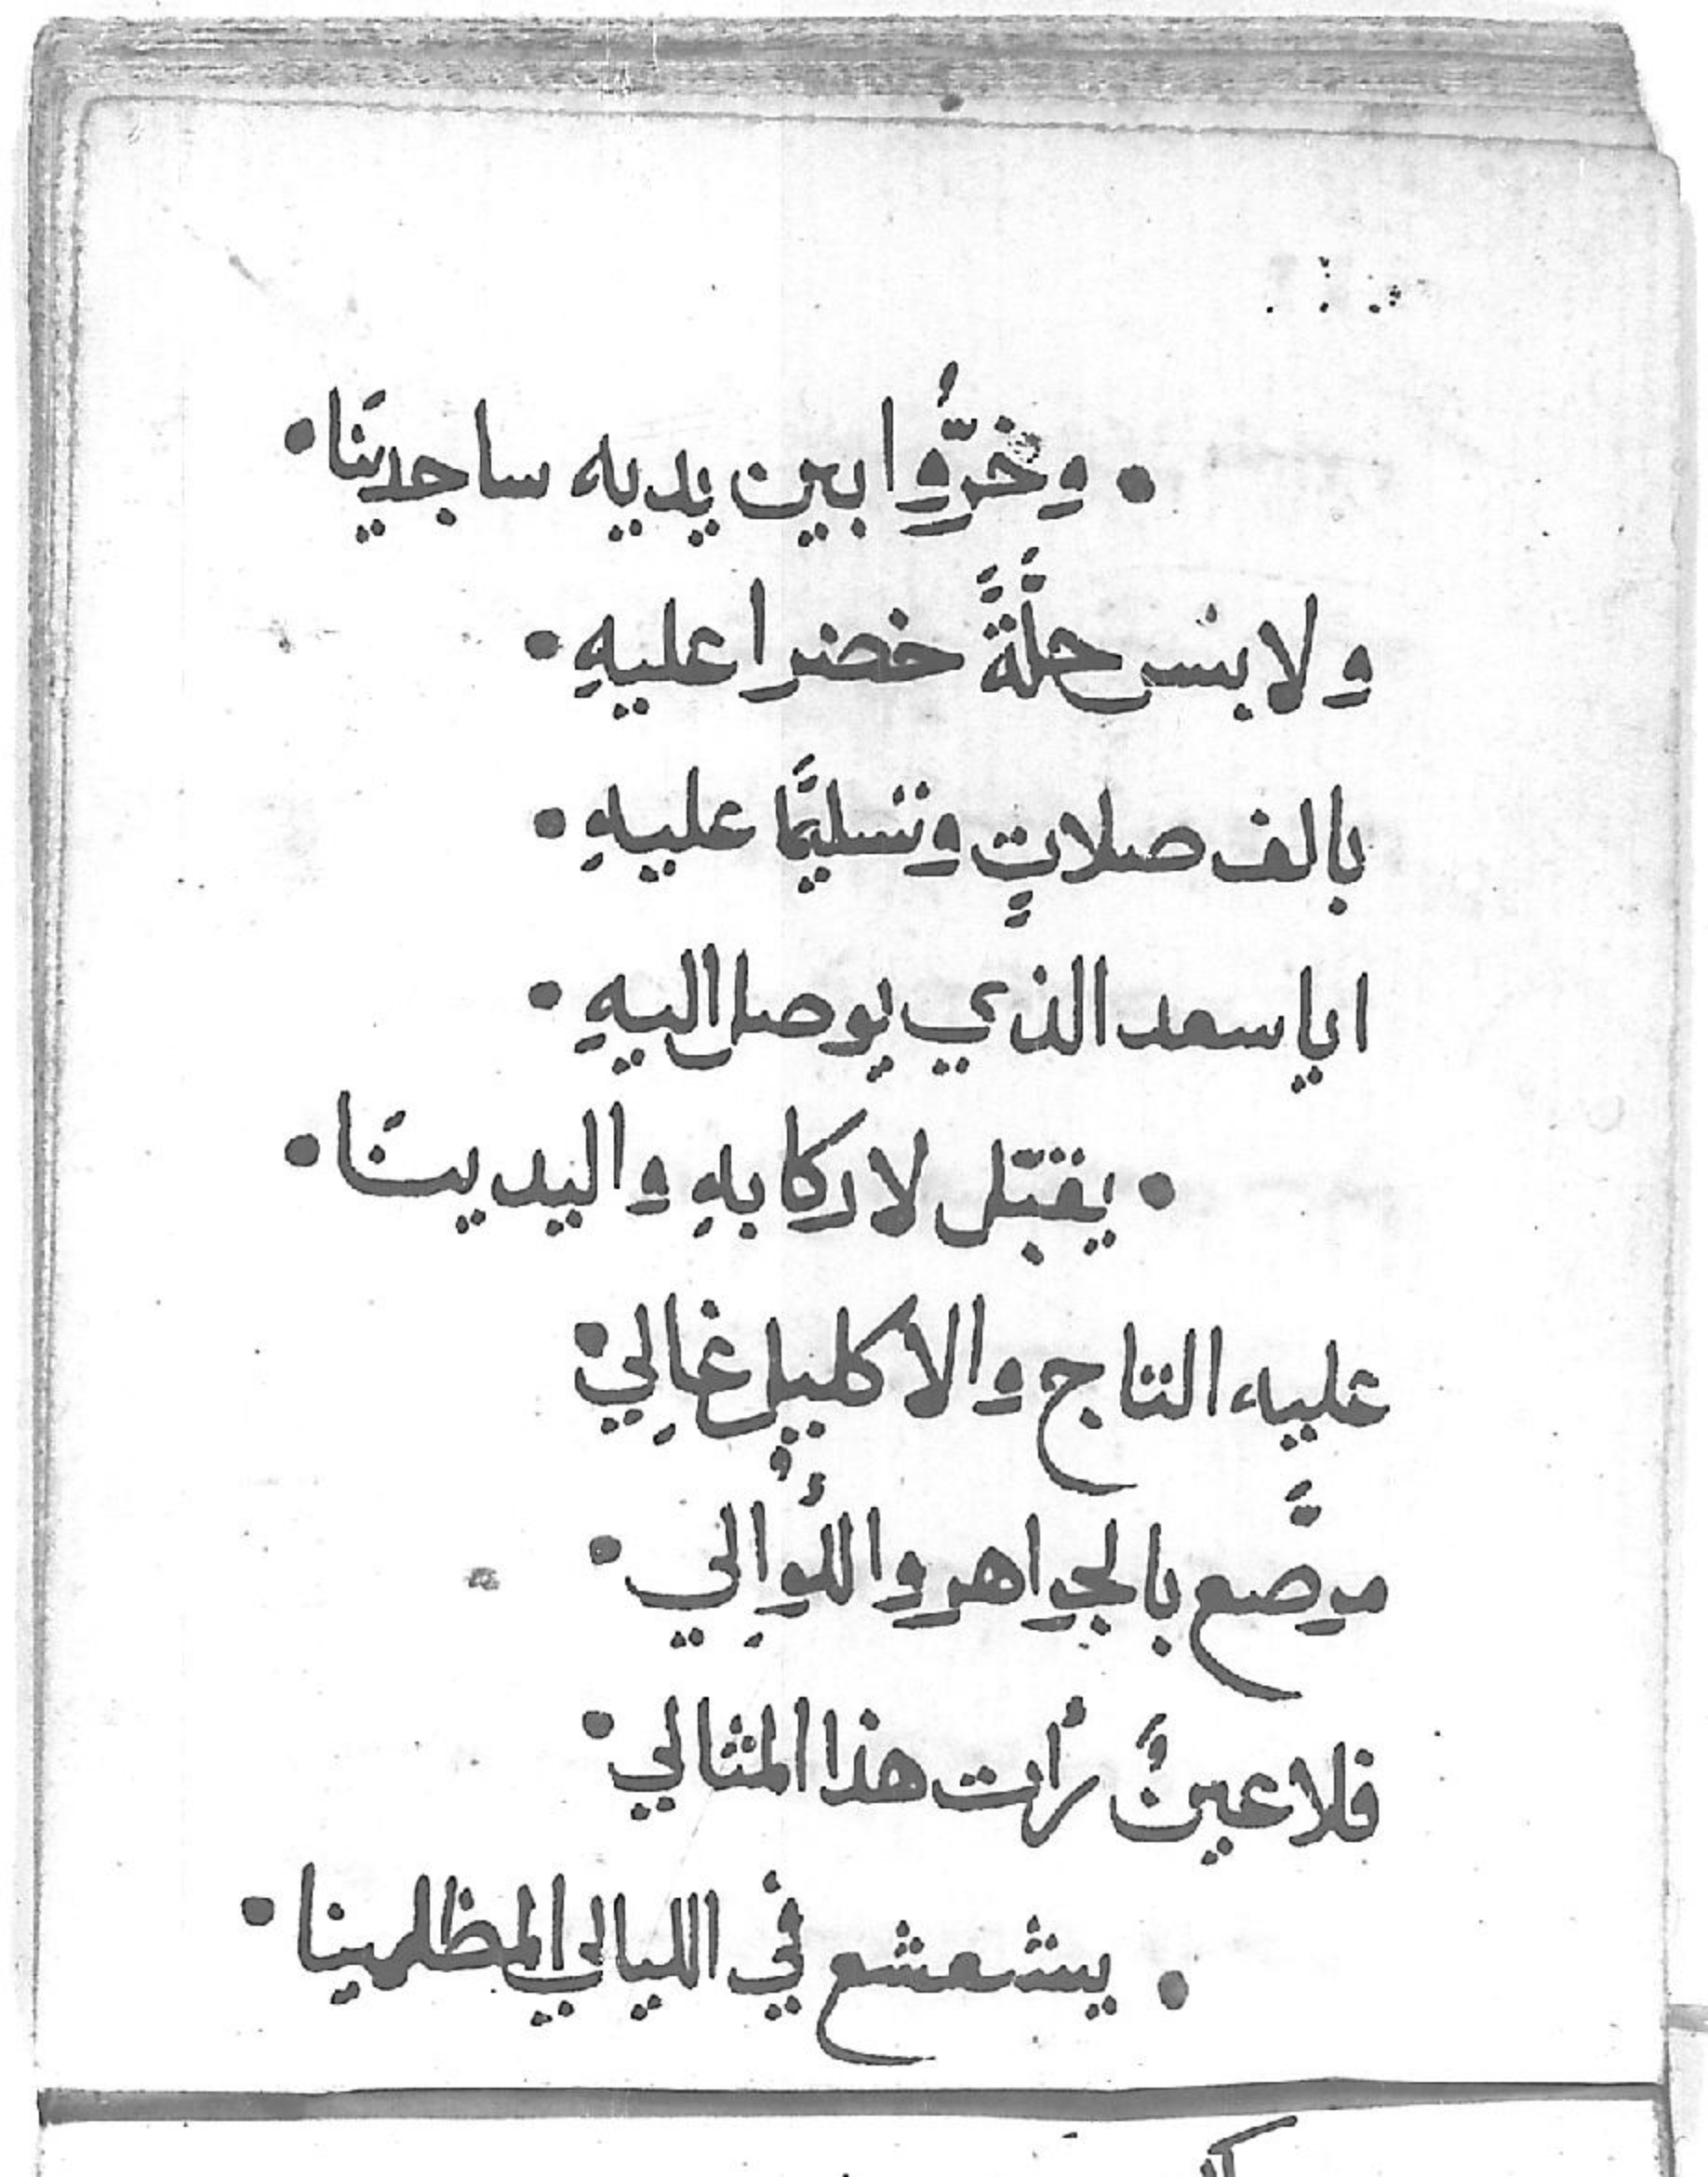 • وخرُّوا بين يديه ساجدينَا •
ولابس حلَّةً خضرا عليهِ •
بالف صلاتٍ وتسليمًا عليهِ •
ايا سعد الذي يوصل اليهِ •
• يقبّل لاركابهِ واليدينَا •
عليه التاج والاكليل غالِي •
مرصَّع بالجواهر واللُوالِي •
فلا عينٌ رأت هذا المثالي •
• يشعشع في الليالي المظلمينا •